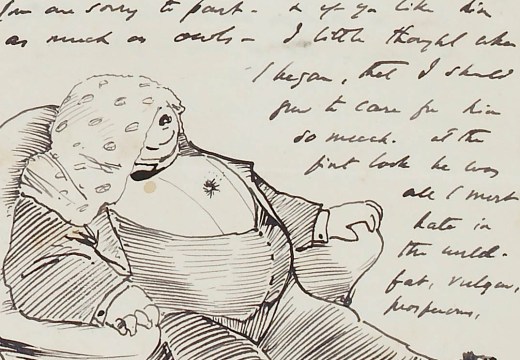 You are sorry to part - & if you like him
as much as owls - I little thought when
I began, that I should
grow to care for him
so much. at the
first look he was
all I most
hate in
the world -
fat, vulgar,
prosperous,